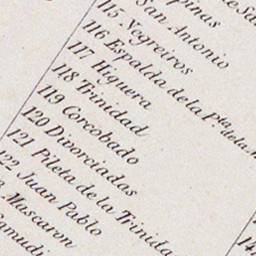 San Antonio
115 Yegreiros
116 Espalda de la Pta. de la
117 Higuera
118 Trinidad
119 Corcobado
120 Divorciadas
121 Pileta de la Trinida
122 Juan Pablo
Mascaren